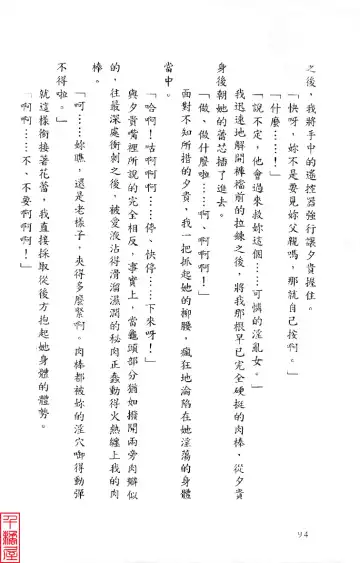 之後，我將手中的遙控器強行讓夕貴握住。
「快呀，妳不是要見妳父親嗎，那就自己按啊。」
「什麼……！」
「說不定，他會過來救妳這個……可憐的淫亂女。」
我迅速地解開褲襠前的拉鍊之後，將我那根早已完全硬挺的肉棒，從夕貴
身後朝她的蕾芯插了進去。
「做、做什麼啦……啊、啊啊啊！」
面對不知所措的夕貴，我一把抓起她的柳腰，瘋狂地淪陷在她淫蕩的身體
當中。
「哈啊！咕啊啊啊……停、快停……下來呀！」
與夕貴嘴裡所說的完全相反，事實上，當龜頭部分猶如撥開兩旁肉瓣似
的，往最深處衝刺之後，被愛液沾得滑溜濕潤的秘肉正蠢動得火熱纏上我的肉
棒。
「呵……妳瞧，還是老樣子，夾得多麼緊啊。肉棒都被妳的淫穴啣得動彈
不得啦。」
就這樣銜接著花蕾，我直接採取從後方抱起她身體的體勢。
「啊啊……不、不要啊啊啊！」
94
千豬屋